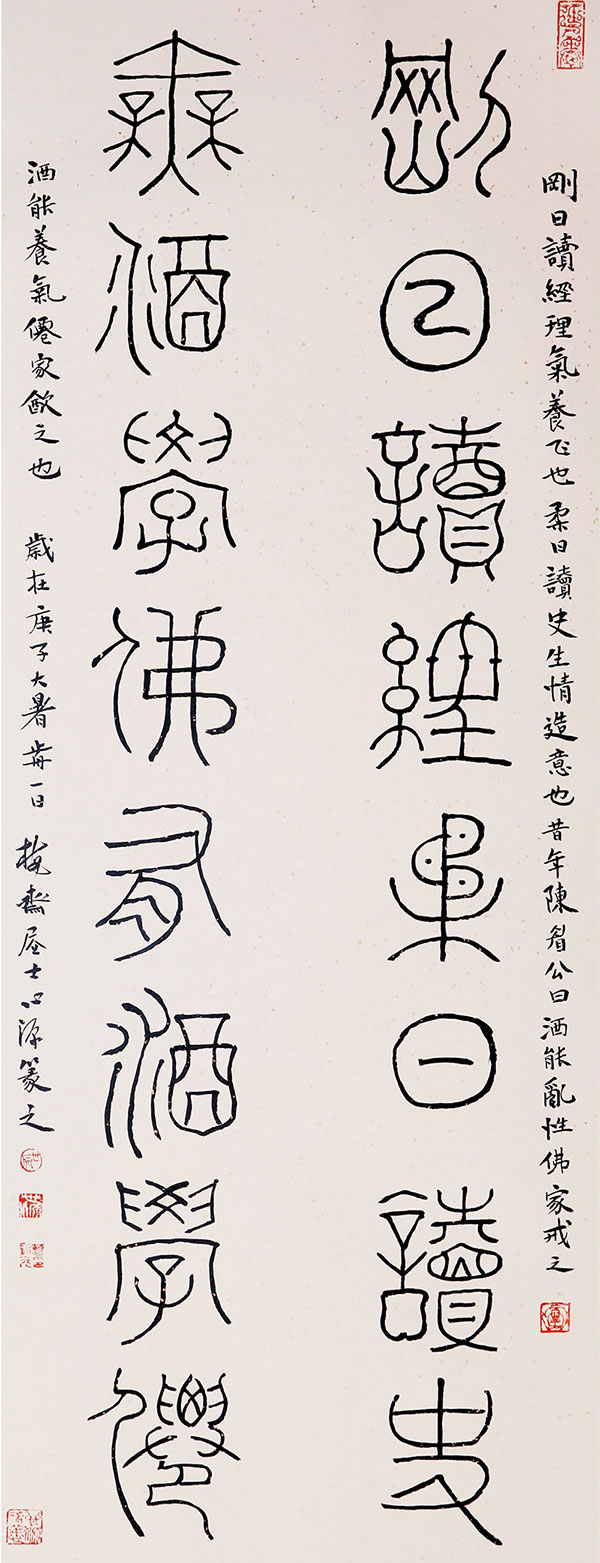 剛日讀經理氣養正也 柔日讀史生情造意也 昔年陳眉公曰酒能亂性佛家戒之
剛日讀經柔日讀史
無酒學佛有酒學僊
酒能養氣僊家飲之也 歲在庚子大暑歬一日 梅齋居士心源篆之